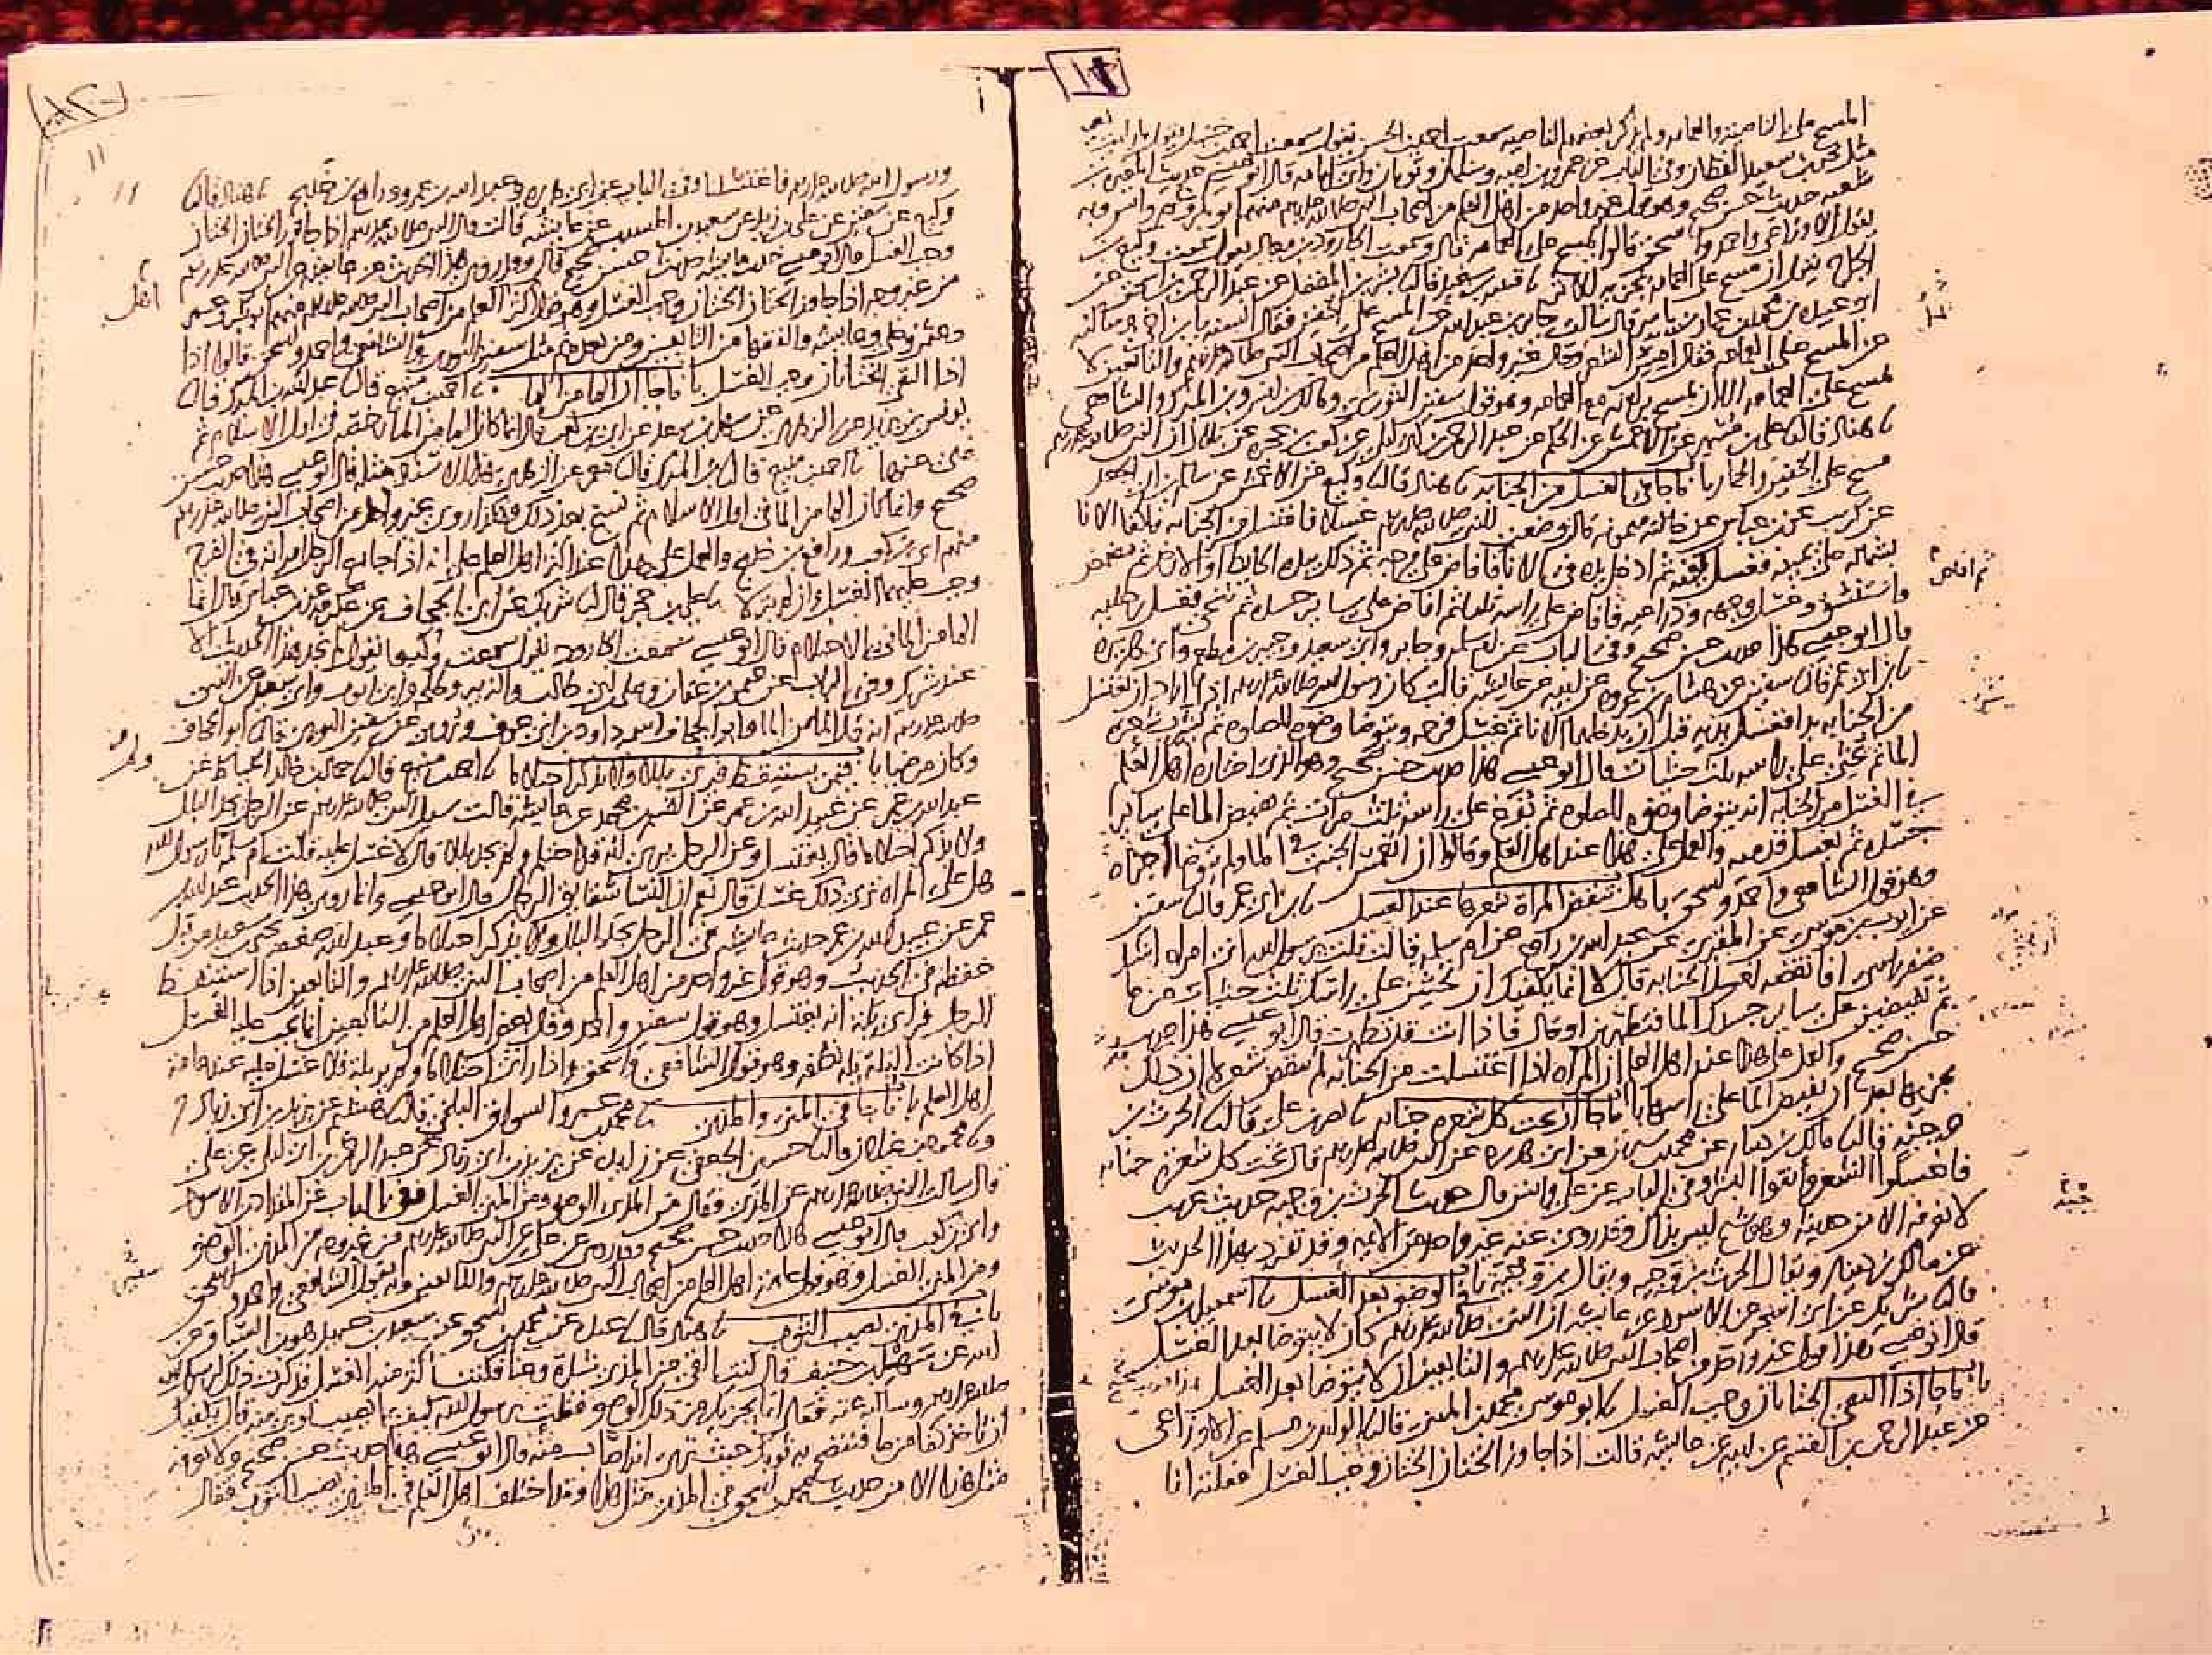 المسح على الناصية والعمامة ولم يذكر بعضهم الناصية سمعت احمد بن الحسن يقول سمعت احمد بن حنبل يقول ما رايت بعيني
مثل يحيى بن سعيد القطان وفي الباب عن عمرو بن امية وسلمان وثوبان وابي امامة قال ابو عيسى حديث المغيرة بن
شعبة حديث حسن صحيح وهو قول غير واحد من اهل العلم من اصحاب النبي صلى الله عليه وسلم منهم ابو بكر وعمر وانس وبه
يقول الاوزاعي واحمد واسحق قالوا يمسح على العمامة قال وسمعت الجارود بن معاذ يقول سمعت وكيع بن
الجراح يقول ان مسح على العمامة يجزيه للاثر نا قتيبة بن سعيد قال نا بشر بن المفضل عن عبد الرحمن بن اسحق عن
ابي عبيدة بن محمد بن عمار بن ياسر قال سالت جابر بن عبد الله عن المسح على الخفين فقال السنة يا بن اخي وسالته
عن المسح على العمامة فقال امس الشعر وقال غير واحد من اهل العلم من اصحاب النبي صلى الله عليه وسلم والتابعين لا
يمسح على العمامة الا ان يمسح براسه مع العمامة وهو قول سفين الثوري ومالك بن انس وابن المبرك والشافعي
نا هناد قال نا علي بن مسهر عن الاعمش عن الحكم عن عبد الرحمن بن ابي ليلى عن كعب بن عجرة عن بلال ان النبي صلى الله عليه وسلم
مسح على الخفين والخمار باب ما جا في الغسل من الجنابة نا هناد قال نا وكيع عن الاعمش عن سالم بن ابي الجعد
عن كريب عن بن عباس عن خالته ميمونة قالت وضعت للنبي صلى الله عليه وسلم غسلا فاغتسل من الجنابة فاكفا الانا
بشماله على يمينه فغسل كفيه ثم ادخل يده في الانا فافاض على فرجه ثم دلك بيده الحايط او الارض ثم مضمض
واستنشق وغسل وجهه وذراعيه فافاض على راسه ثلثا ثم افاض على ساير جسده ثم تنحى فغسل رجليه
قال ابو عيسى هذا حديث حسن صحيح وفي الباب عن ام سلمة وجابر وابي سعيد وجبير بن مطعم وابي هريرة
نا بن ابي عمر قال نا سفين عن هشام بن عروة عن ابيه عن عايشة قالت كان رسول الله صلى الله عليه وسلم اذا اراد ان يغتسل
من الجنابة بدا فغسل يديه قبل ان يدخلهما الانا ثم غسل فرجه ويتوضا وضوه للصلوة ثم يشرب شعره
الما ثم يحثي على راسه ثلث حثيات قال ابو عيسى هذا حديث حسن صحيح وهو الذي اختاره اهل العلم
في الغسل من الجنابة انه يتوضا وضوه للصلوة ثم يفرغ على راسه ثلث مرات ثم يفيض الما على ساير
جسده ثم يغسل قدميه والعمل على هذا عند اهل العلم وقالوا ان انغمس الجنب في الما ولم يتوضا اجزاه
وهو قول الشافعي واحمد واسحق باب هل تنقض المراة شعرها عند الغسل نا بن ابي عمر قال نا سفين
عن ايوب بن موسى عن المقبري عن عبد الله بن رافع عن ام سلمة قالت قلت يرسول الله اني امراة اشد
ضفر راسي افانقضه لغسل الجنابة قال لا انما يكفيك ان تحثين على راسك ثلث حثيات من ما
ثم تفيضين على ساير جسدك الما فتطهرين او قال فاذا انت قد تطهرت قال ابو عيسى هذا حديث
حسن صحيح والعمل على هذا عند اهل العلم ان المراة اذا اغتسلت من الجنابة فلم تنقض شعرها ان ذلك
يجزيها بعد ان تفيض الما على راسها باب ما جا ان تحت كل شعرة جنابة نا نصر بن علي قال نا الحرث بن
وجيه قال نا مالك بن دينار عن محمد بن سيرين عن ابي هريرة عن النبي صلى الله عليه وسلم قال تحت كل شعرة جنابة
فاغسلوا الشعر وانقوا البشر وفي الباب عن علي وانس قال حديث الحرث بن وجيه حديث غريب
لا نعرفه الا من حديثه وهو شيخ ليس بذاك وقد روى عنه غير واحد من الايمة وقد تفرد بهذا الحديث
عن مالك بن دينار ويقال الحرث بن وجيه ويقال بن وجبة باب في الوضو بعد الغسل نا اسمعيل بن موسى
قال نا شريك عن ابي اسحق عن الاسود عن عايشة ان النبي صلى الله عليه وسلم كان لا يتوضا بعد الغسل
قال ابو عيسى هذا قول غير واحد من اصحاب النبي صلى الله عليه وسلم والتابعين ان لا يتوضا بعد الغسل
باب ما جا اذا التقى الختانان وجب الغسل نا ابو موسى محمد بن المثنى قال نا الوليد بن مسلم عن الاوزاعي
عن عبد الرحمن بن القسم عن ابيه عن عايشة قالت اذا جاوز الختان الختان وجب الغسل فعلته انا
ثم افاض
١١
ورسول الله صلى الله عليه وسلم فاغتسلنا وفي الباب عن ابي هريرة وعبد الله بن عمرو ورافع بن خديج نا هناد قال نا
وكيع عن سفين عن علي بن زيد عن سعيد بن المسيب عن عايشة قالت قال النبي صلى الله عليه وسلم اذا جاوز الختان الختان
وجب الغسل قال ابو عيسى حديث عايشة حديث حسن صحيح قال وقد روي هذا الحديث عن عايشة عن النبي صلى الله عليه وسلم
من غير وجه اذا جاوز الختان الختان وجب الغسل وهو قول اكثر العلم من اصحاب النبي صلى الله عليه وسلم منهم ابو بكر وعمر
وعثمن وعلي وعايشة والفقها من التابعين ومن بعدهم مثل سفين الثوري والشافعي واحمد واسحق قالوا اذا
اذا التقى الختانان وجب الغسل باب ما جا ان الما من الما نا احمد بن منيع قال نا عبد الله بن المبرك قال نا
يونس بن يزيد عن الزهري عن سهل بن سعد عن ابي بن كعب قال انما كان الما من الما رخصة في اول الاسلام ثم
نهي عنها نا احمد بن منيع قال نا بن المبرك قال نا معمر عن الزهري بهذا الاسناد مثله قال ابو عيسى هذا حديث حسن
صحيح وانما كان الما من الما في اول الاسلام ثم نسخ بعد ذلك وهكذا روى غير واحد من اصحاب النبي صلى الله عليه وسلم
منهم ابي بن كعب ورافع بن خديج والعمل على هذا عند اكثر اهل العلم على انه اذا جامع الرجل امراته في الفرج
وجب عليهما الغسل وان لم ينزلا نا علي بن حجر قال نا شريك عن ابي الجحاف عن عكرمة عن بن عباس قال انما
الما من الما في الاحتلام قال ابو عيسى سمعت الجارود يقول سمعت وكيعا يقول لم نجد هذا الحديث الا
عند شريك وفي الباب عن عثمن بن عفان وعلي بن ابي طالب والزبير وطلحة وابي ايوب وابي سعيد عن النبي
صلى الله عليه وسلم انه قال الما من الما وابو الجحاف اسمه داود بن ابي عوف وروي عن سفين الثوري قال نا ابو الجحاف
وكان مرضيا باب فيمن يستيقظ فيرى بللا ولا يذكر احتلاما نا احمد بن منيع قال نا حماد بن خالد الخياط عن
عبد الله بن عمر عن عبيد الله بن عمر عن القسم بن محمد عن عايشة قالت سيل النبي صلى الله عليه وسلم عن الرجل يجد البلل
ولا يذكر احتلاما قال يغتسل وعن الرجل يرى انه قد احتلم ولم يجد بللا قال لا غسل عليه قالت ام سلمة يا رسول الله
هل على المراة ترى ذلك غسل قال نعم ان النسا شقايق الرجال قال ابو عيسى وانما روى هذا الحديث عبد الله بن
عمر عن عبيد الله بن عمر حديث عايشة في الرجل يجد البلل ولا يذكر احتلاما وعبد الله ضعفه يحيى بن سعيد من قبل
حفظه في الحديث وهو قول غير واحد من اهل العلم من اصحاب النبي صلى الله عليه وسلم والتابعين اذا استيقظ
الرجل فراى بلة انه يغتسل وهو قول سفين واحمد وقال بعض اهل العلم من التابعين انما يجب عليه الغسل
اذا كانت البلة بلة نطفة وهو قول الشافعي واسحق واذا راى احتلاما ولم ير بلة فلا غسل عليه عند عامة
اهل العلم باب ما جا في المني والمذي نا محمد بن عمرو السواق البلخي قال نا هشيم عن يزيد بن ابي زياد ح
ونا محمود بن غيلان قال نا حسين الجعفي عن زايدة عن يزيد بن ابي زياد عن عبد الرحمن بن ابي ليلى عن علي
قال سالت النبي صلى الله عليه وسلم عن المذي فقال من المذي الوضو ومن المني الغسل وفي الباب عن المقداد بن الاسود
وابي بن كعب قال ابو عيسى هذا حديث حسن صحيح وقد روي عن علي عن النبي صلى الله عليه وسلم من غير وجه من المذي الوضو
ومن المني الغسل وهو قول عامة اهل العلم من اصحاب النبي صلى الله عليه وسلم والتابعين وبه يقول الشافعي واحمد واسحق
باب في المذي يصيب الثوب نا هناد قال نا عبدة عن محمد بن اسحق عن سعيد بن عبيد هو بن السباق عن
ابيه عن سهل بن حنيف قال كنت القى من المذي شدة وعنا فكنت اكثر منه الغسل فذكرت ذلك لرسول الله
صلى الله عليه وسلم وسالته عنه فقال انما يجزيك من ذلك الوضو فقلت يرسول الله كيف بما يصيب ثوبي منه قال يكفيك
ان تاخذ كفا من ما فتنضح به ثوبك حيث ترى انه اصاب منه قال ابو عيسى هذا حديث حسن صحيح ولا نعرفه
مثل هذا الا من حديث محمد بن اسحق في المذي مثل هذا وقد اختلف اهل العلم في المذي يصيب الثوب فقال